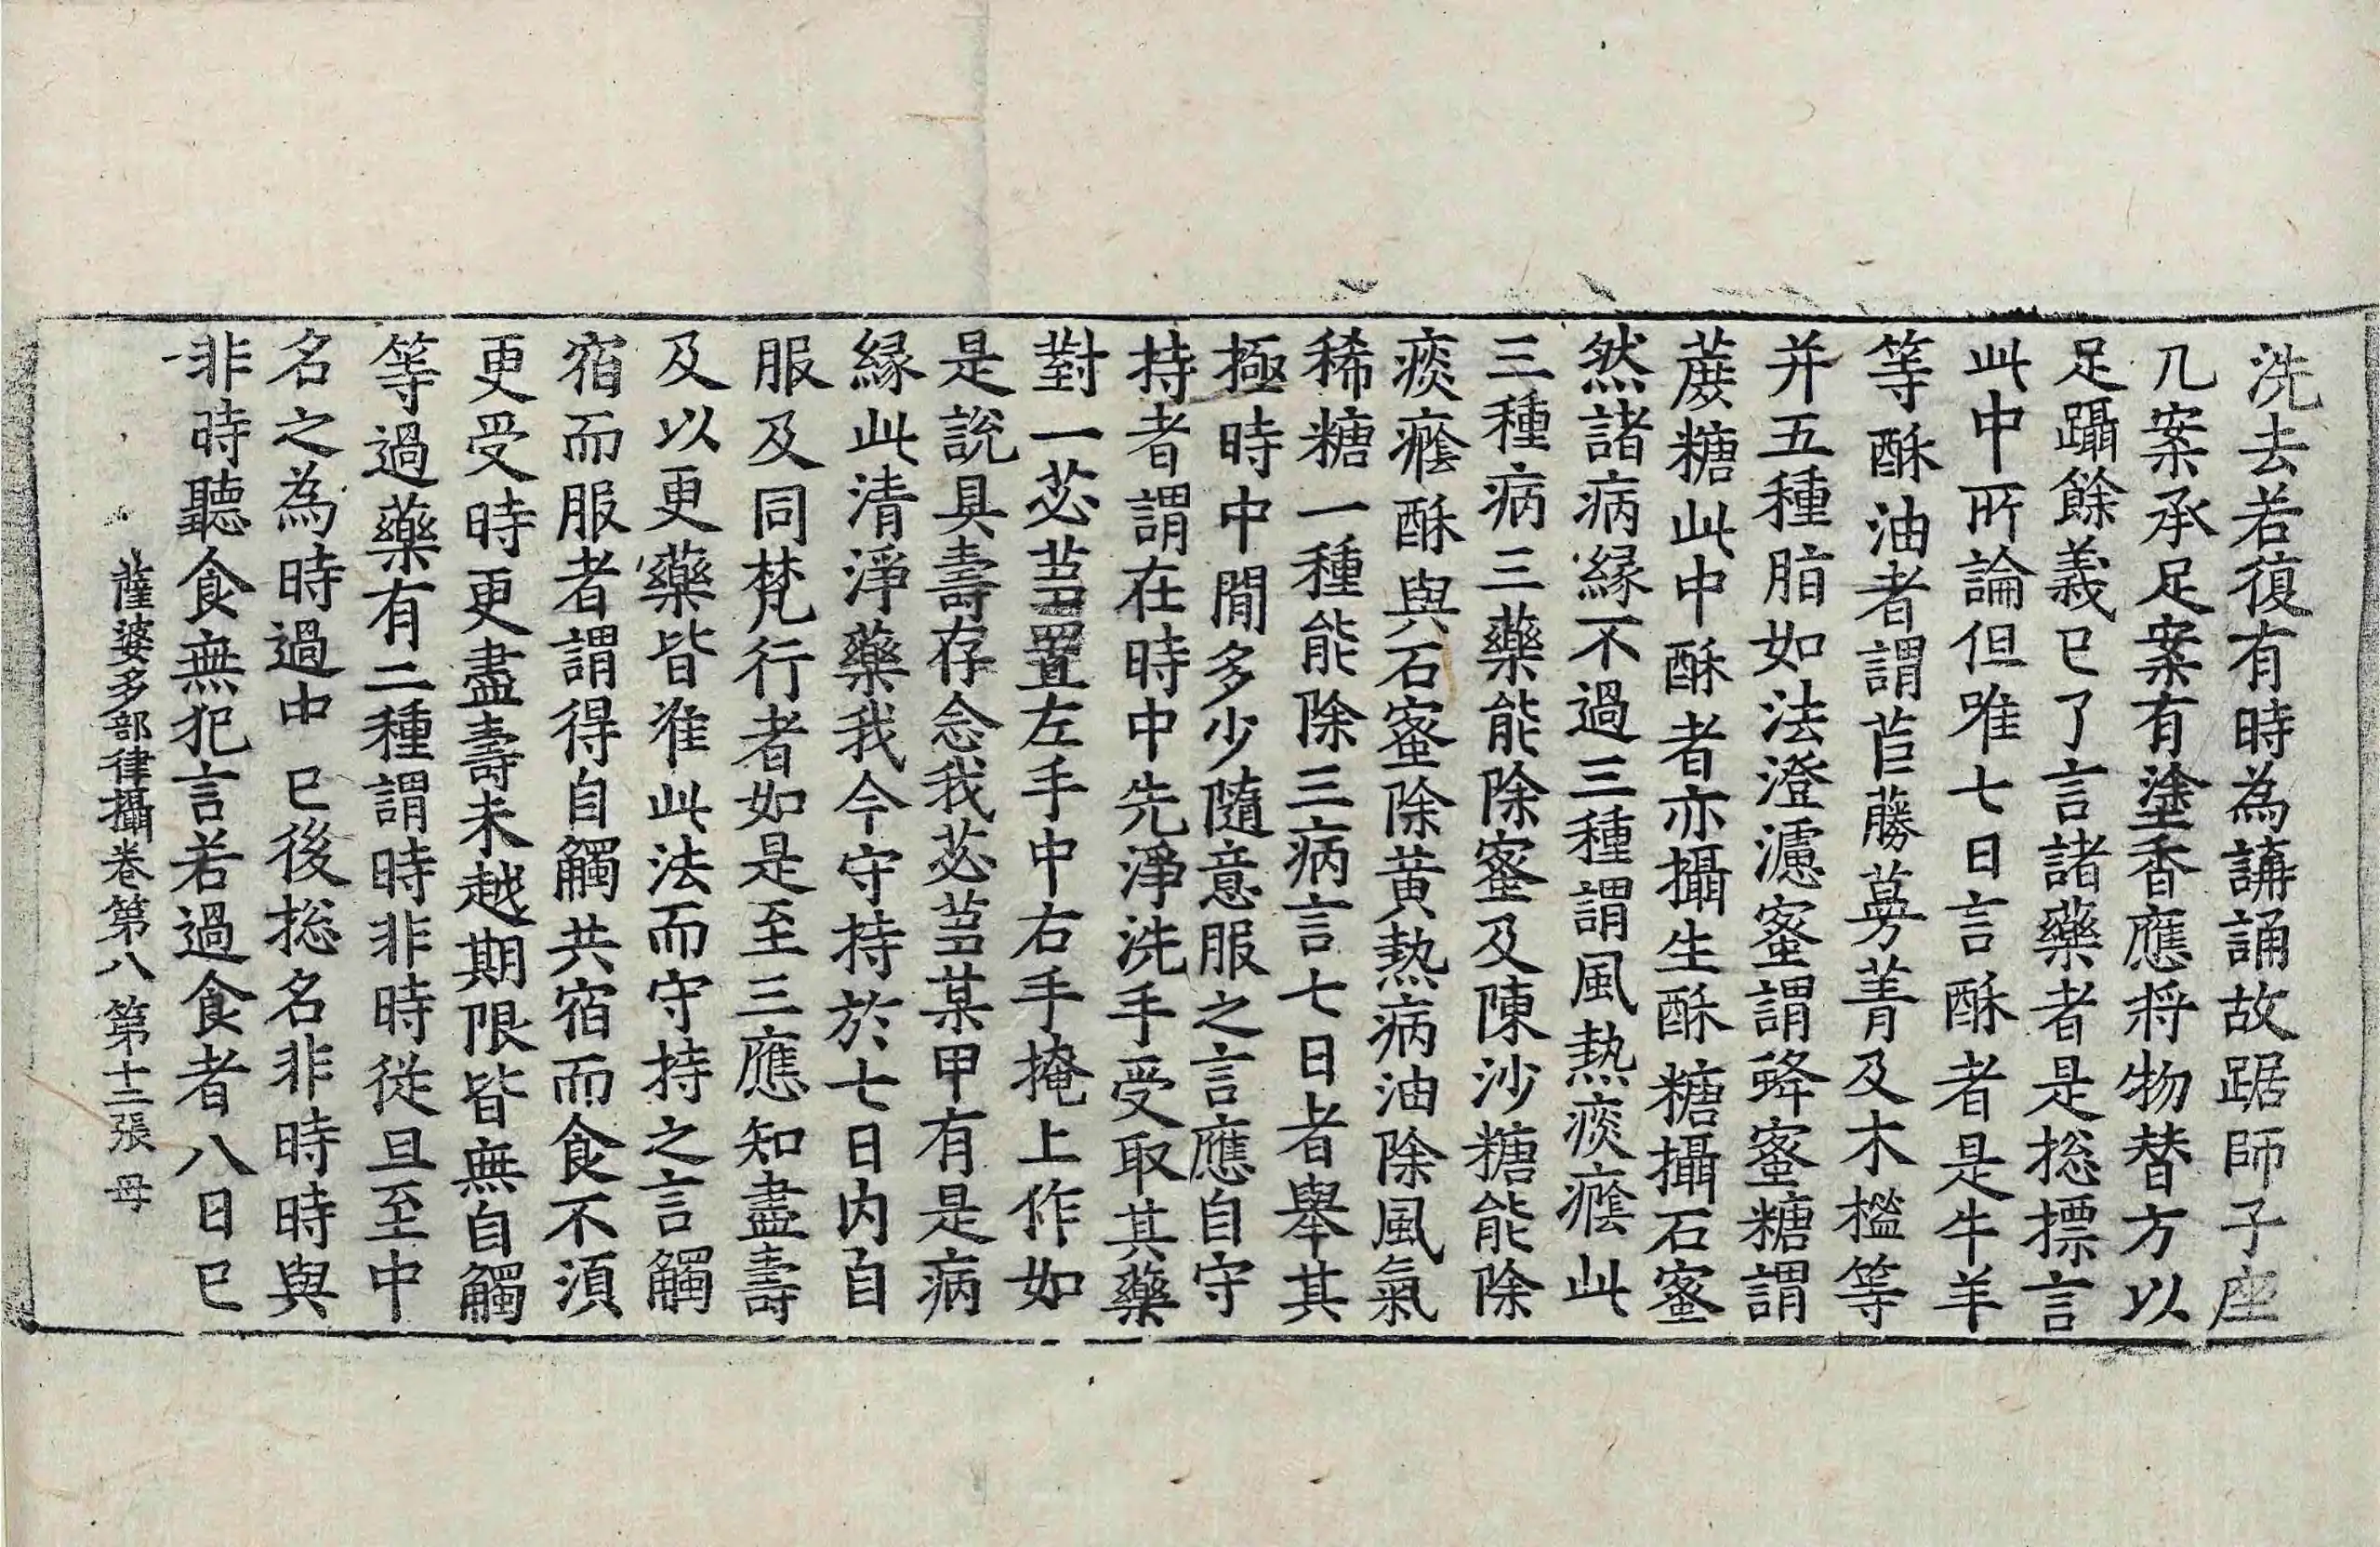 洗去若復有時為講誦故踞師子座
几案承足案有塗香應將物替方以
足躡餘義已了言諸藥者是捴摽言
此中所論但唯七日言酥者是牛羊
等酥油者謂苣蕂蔓菁及木櫁等
并五種脂如法澄濾蜜謂蜂蜜糖謂
蔗糖此中酥者亦攝生酥糖攝石蜜
然諸病縁不過三種謂風熱痰癊此
三種病三藥能除蜜及陳沙糖能除
痰癊酥與石蜜除黃熱病油除風氣
稀糖一種能除三病言七日者舉其
極時中閒多少隨意服之言應自守
持者謂在時中先淨洗手受取其藥
對一苾芻置左手中右手掩上作如
是說具壽存念我苾芻某甲有是病
縁此清淨藥我今守持於七日内自
服及同梵行者如是至三應知盡壽
及以更藥皆准此法而守持之言觸
宿而服者謂得自觸共宿而食不湏
更受時更盡壽未越期限皆無自觸
等過藥有二種謂時非時從旦至中
名之為時過中已後捴名非時時與
非時聽食無犯言若過食者八日已
薩婆多部律攝卷第八 第十二張 母